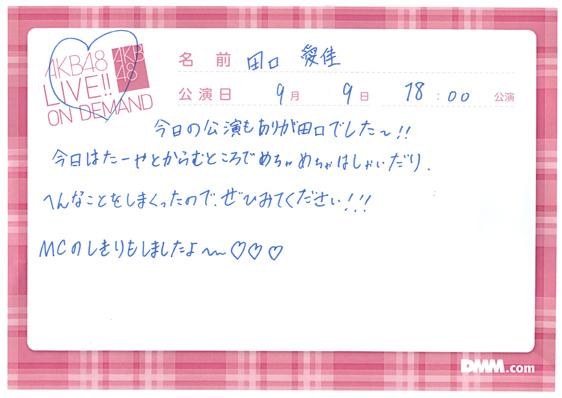 AKB48
LIVE!!
ON DEMAND
AKB
48
名前 田口 愛佳
公演日 9月 9日 18:00 公演
今日の公演もありが田口でした〜!!
今日はたーやとからむところでめちゃめちゃはしゃいだり、
へんなことをしまくったので、ぜひみてください!!!
MCのしきりもしましたよ〜〜♡♡♡
DMM.com